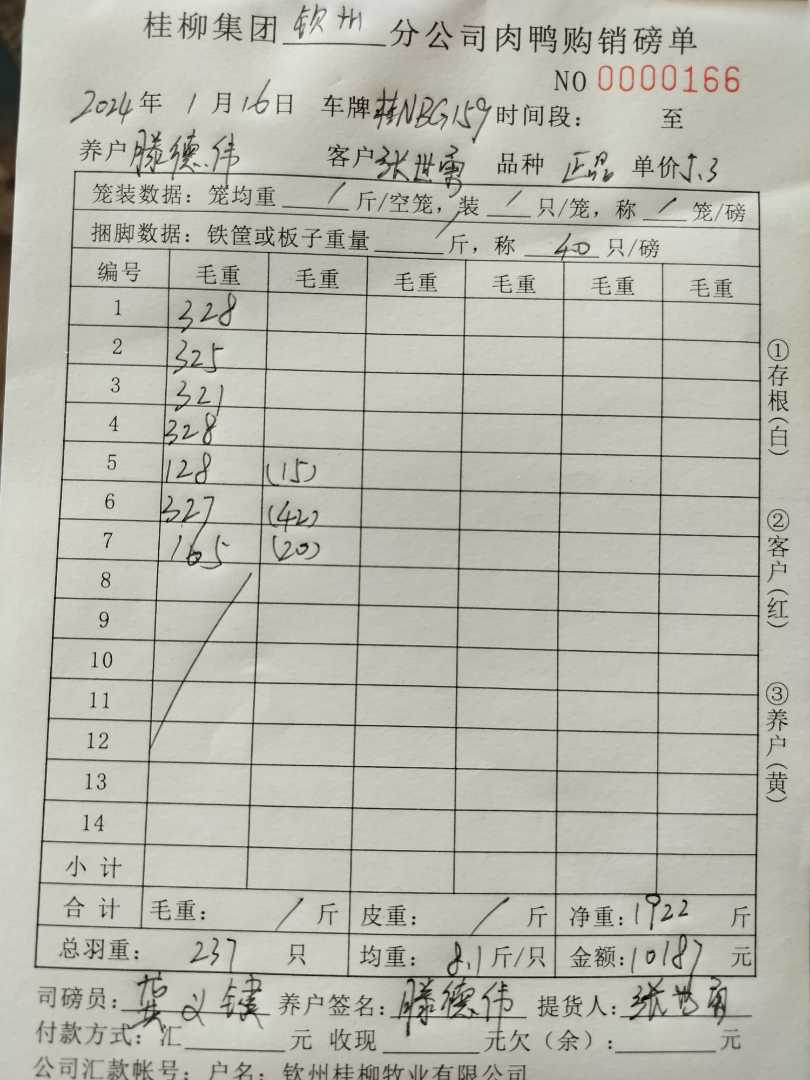 桂柳集团 钦州 分公司肉鸭购销磅单
NO 0000166
2024年 1月16日 车牌桂NBG159 时间段： 至
养户滕德伟 客户张世勇 品种 正品 单价5.3
笼装数据：笼均重 / 斤/空笼，装 / 只/笼，称 / 笼/磅
捆脚数据：铁筐或板子重量 / 斤，称 40 只/磅
编号 毛重 毛重 毛重 毛重 毛重 毛重
1 328
2 325
3 321
4 328
5 128 (15)
6 327 (42)
7 165 (20)
8
9
10
11
12
13
14
小计
合计 毛重： / 斤 皮重： / 斤 净重：1922 斤
总羽重： 237 只 均重：8.1斤/只 金额：10187 元
司磅员： 义 养户签名：滕德伟 提货人：张世勇
付款方式：汇 元 收现 元欠（余）： 元
公司汇款帐号：户名：钦州桂柳牧业有限公司
①存根（白）
②客户（红）
③养户（黄）